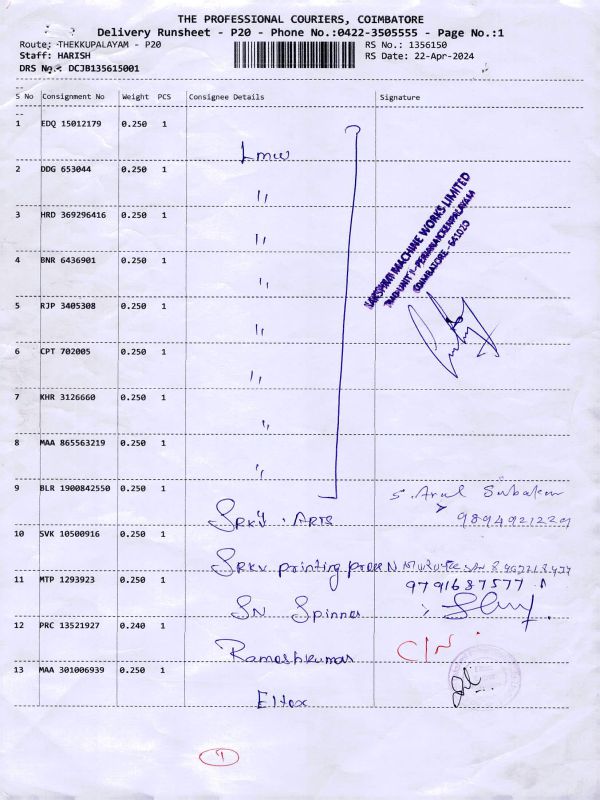 THE PROFESSIONAL COURIERS, COIMBATORE
Delivery Runsheet - P20 - Phone No.:0422-3505555 - Page No.:1
Route: THEKKUPALAYAM - P20 RS No.: 1356150
Staff: HARISH RS Date: 22-Apr-2024
DRS No.: DCJB135615001
S No Consignment No Weight PCS Consignee Details Signature
1 EDQ 15012179 0.250 1 Lmw
2 DDG 653044 0.250 1 "
3 HRD 369296416 0.250 1 "
4 BNR 6436901 0.250 1 "
5 RJP 3405308 0.250 1 "
6 CPT 702005 0.250 1 "
7 KHR 3126660 0.250 1 "
8 MAA 865563219 0.250 1 "
LAKSHMI MACHINE WORKS LIMITED
COIMBATORE - 641020
9 BLR 1900842550 0.250 1 ARTS S. Arul
10 SVK 10500916 0.250 1 SRKV printing press
11 MTP 1293923 0.250 1 SN Spinner 9791687577
12 PRC 13521927 0.240 1 Rameshkumar
13 MAA 301006939 0.250 1 Eltex